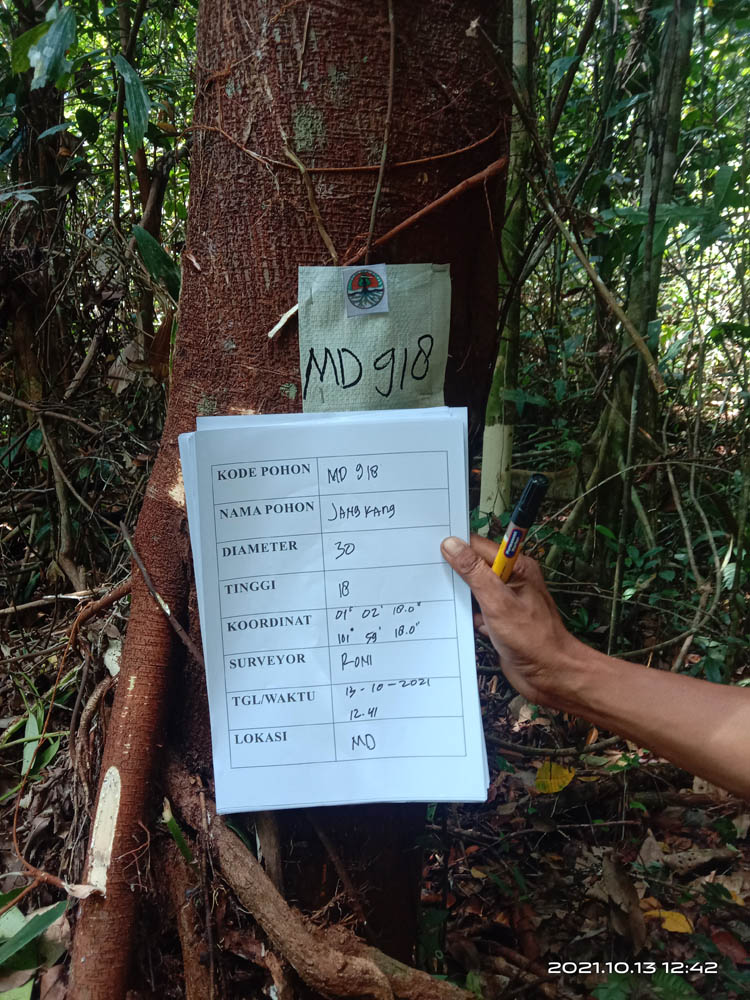 MD 918
KODE POHON MD 918
NAMA POHON JANGKANG
DIAMETER 30
TINGGI 18
KOORDINAT 01° 02' 18.0"
101° 59' 18.0"
SURVEYOR RONI
TGL/WAKTU 13-10-2021
12.41
LOKASI MD
2021.10.13 12:42